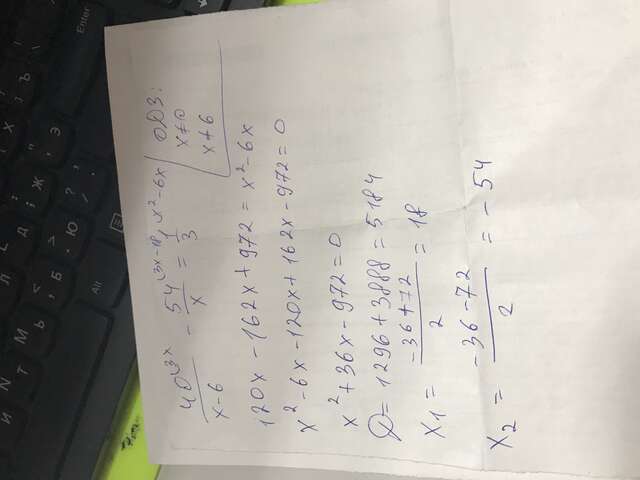 И
N Т
M Ь
< Б
> Ю
? /
Л
Д
Ж
Э
Х
Ъ
Alt
Enter
40^(3x / x-6 - 54^(3x-18 / x = 1/3^(x²-6x
ОДЗ:
x≠0
x≠6
120x - 162x + 972 = x² - 6x
x² - 6x - 120x + 162x - 972 = 0
x² + 36x - 972 = 0
D = 1296 + 3888 = 5184
x₁ = -36+72 / 2 = 18
x₂ = -36-72 / 2 = -54